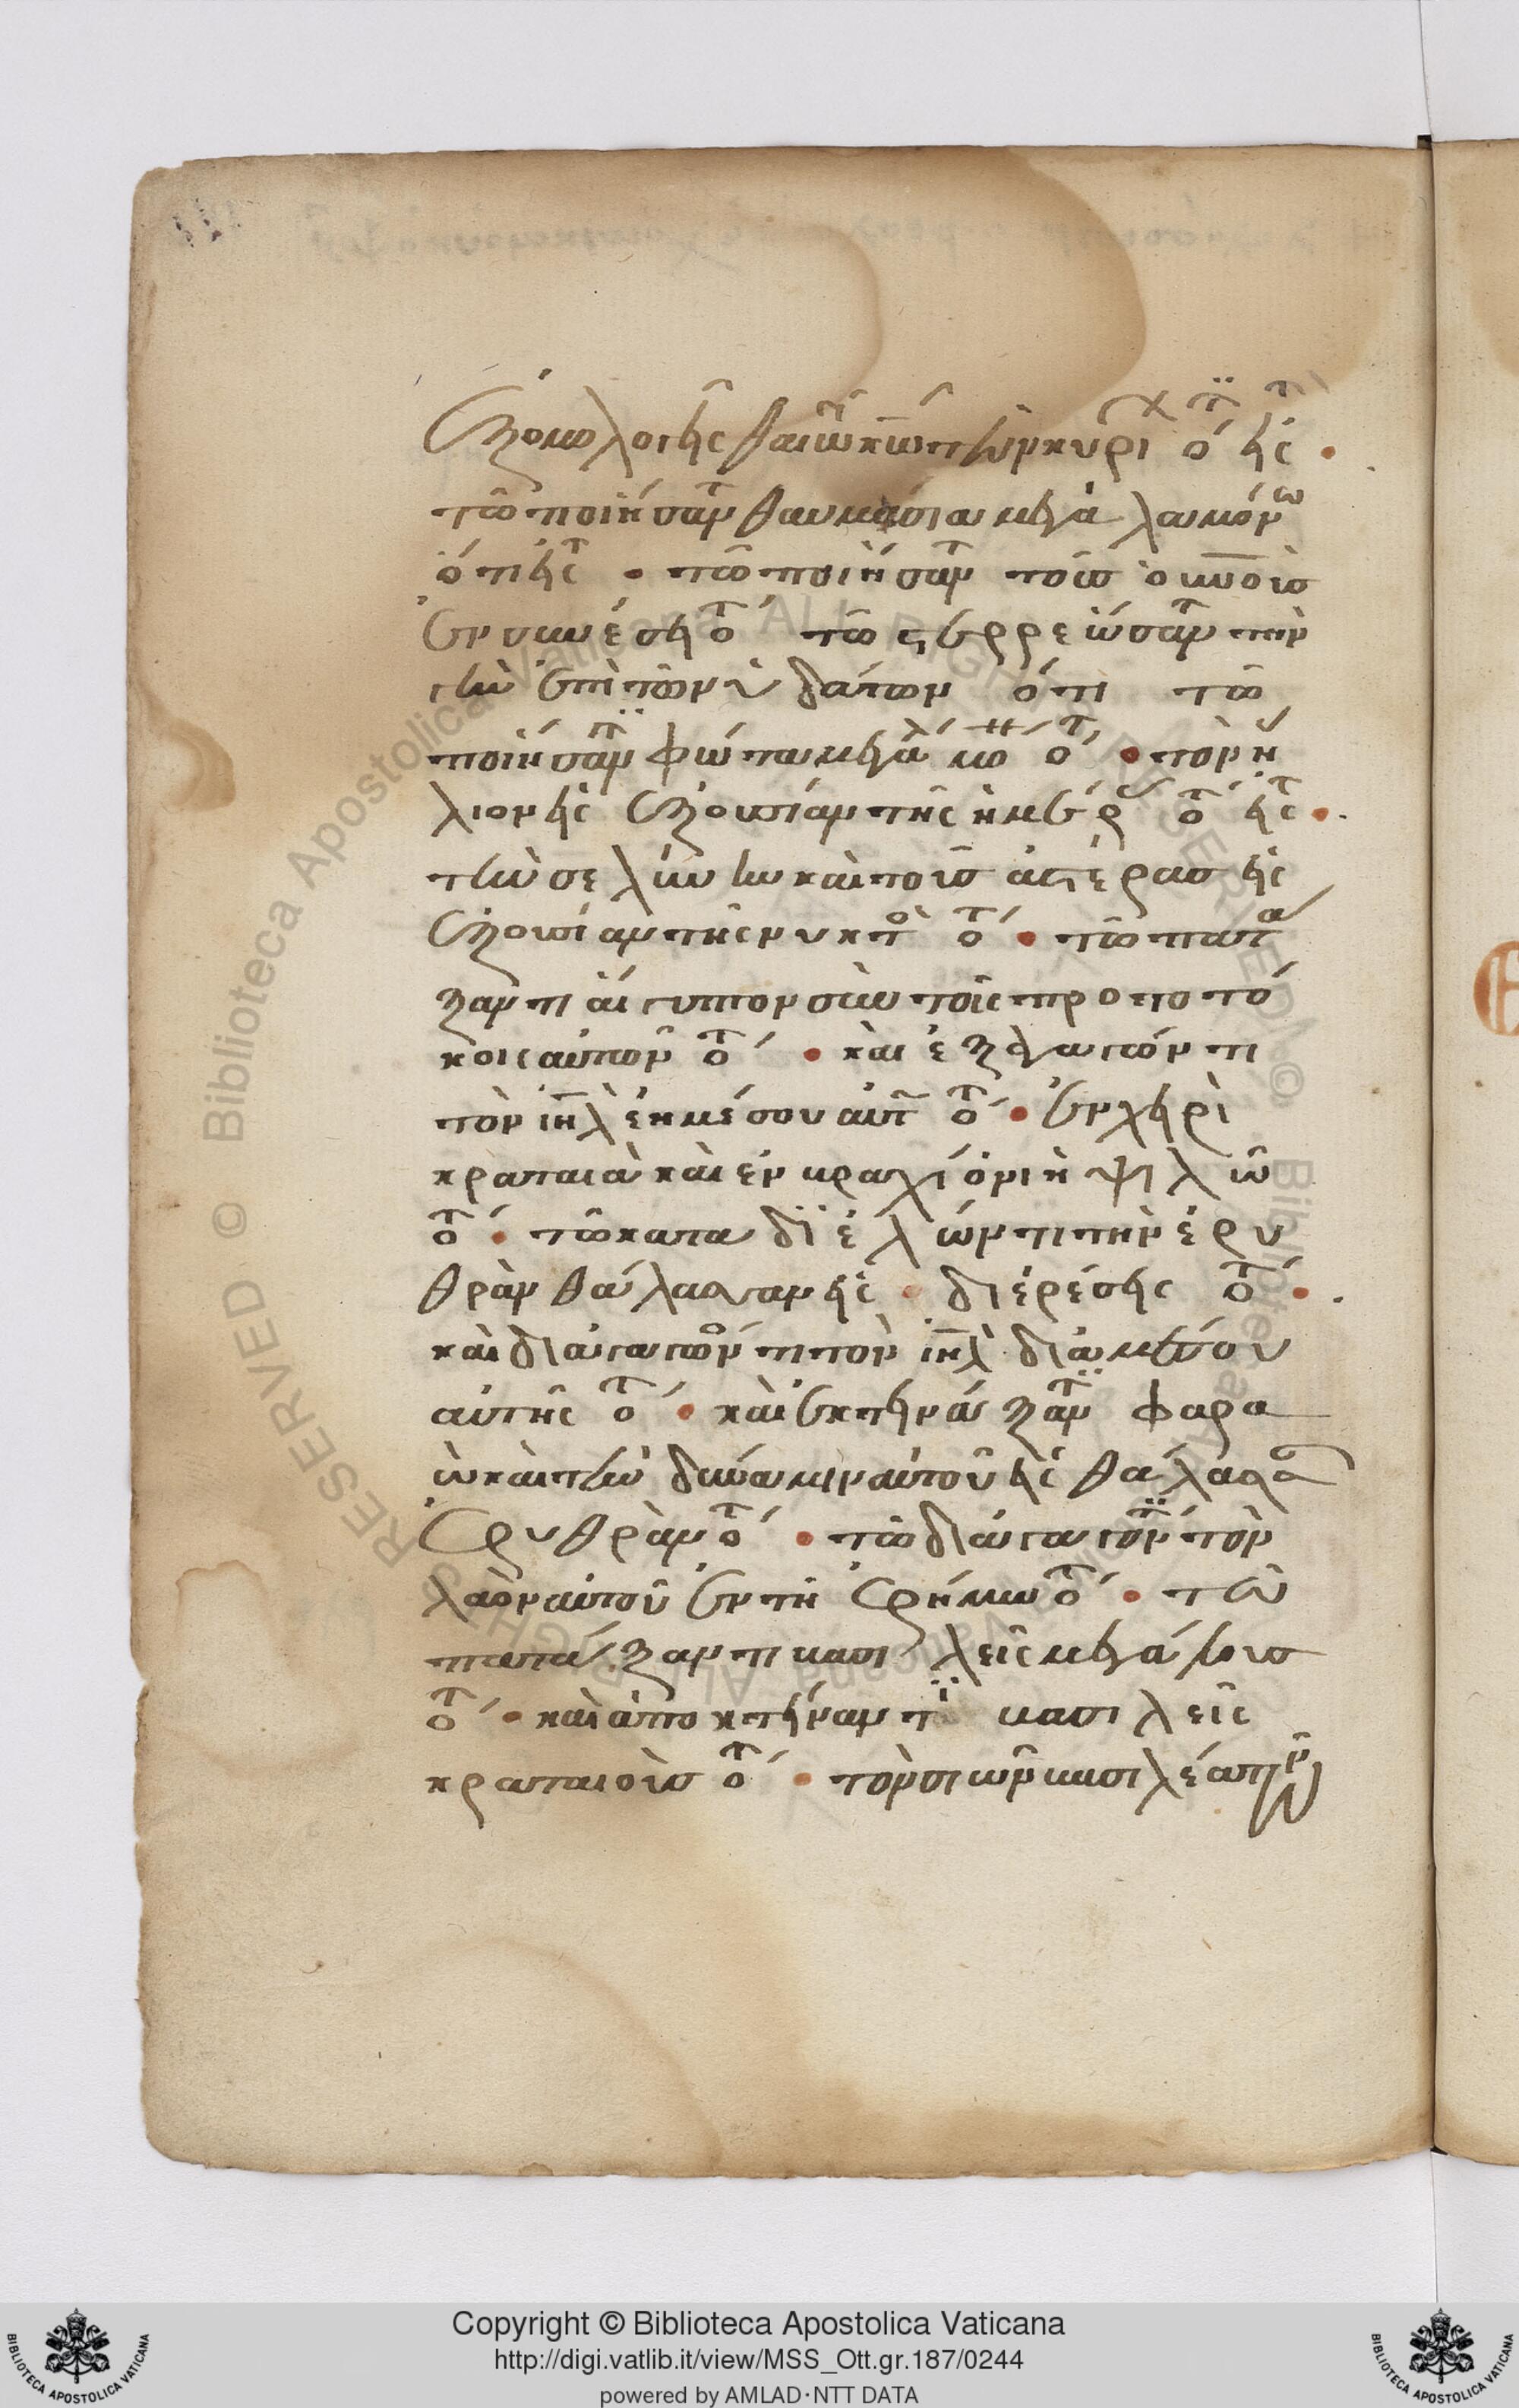 ἐξομολογεῖσθαι τῷ κω τῶν κυρί ὅτ εἰς
τῶ ποιήσαντ θαυμάσια μεγάλα μόνω
ὅτι εἰς τ • τῶ ποιήσαντ τοὺς οὐνοὺς
ἐν συνέσει ὅτ τῶ στερρεώσαντ τὴν
γὴν ἐπὶ τῶν ὑδάτων ὅτι τῶ
ποιήσαντϊ φώτα μεγάλ μο ὅτ • τὸν ἥ
λιον εἰς ἐξουσίαν τῆς ἡμέρ ὅτ εἰς τ •
τὴν σελήνην καὶ τοὺς ἀστέρας εἰς
ἐξουσίαν τῆς νυκτὸ ὅτ • τῶ πατά
ξαντι αἴγυπτον σὺν τοῖς προτοτό
κοις αὐτῶν ὅτ • καὶ ἐξαγαγόντι
τὸν ιηλ ἐκ μέσου αὐτ ὅτ • ἐν χειρὶ
κραταιὰ καὶ ἐν βραχίονι ὑψιλῶ
ὅτ • τῶ καταδϊελώντι τὴν ἐρυ
θρὰν θάλασσαν εἰς • διερέσεις ὅτ •
καὶ διαγαγόντι τὸν ιηλ διὰ μέσου
αὐτῆς ὅτ • καὶ ἐκτεινάξαντϊ φαρα
ὼ καὶ τὴν δύναμιν αὐτοῦ εἰς θάλασσα
ἐρυθρὰν ὅτ • τῶ διαγαγόντϊ τὸν
λαὸν αὐτοῦ ἐν τῆ ἐρήμω ὅτ • τῶ
πατάξαντι βασιλεῖς μεγάλους
ὅτ • καὶ ἀποκτείναντϊ βασιλεῖς
κραταιοὺς ὅτ • τὸν σιὼν βασιλέα τῶν
Copyright © Biblioteca Apostolica Vaticana
http://digi.vatlib.it/view/MSS_Ott.gr.187/0244
powered by AMLAD·NTT DATA